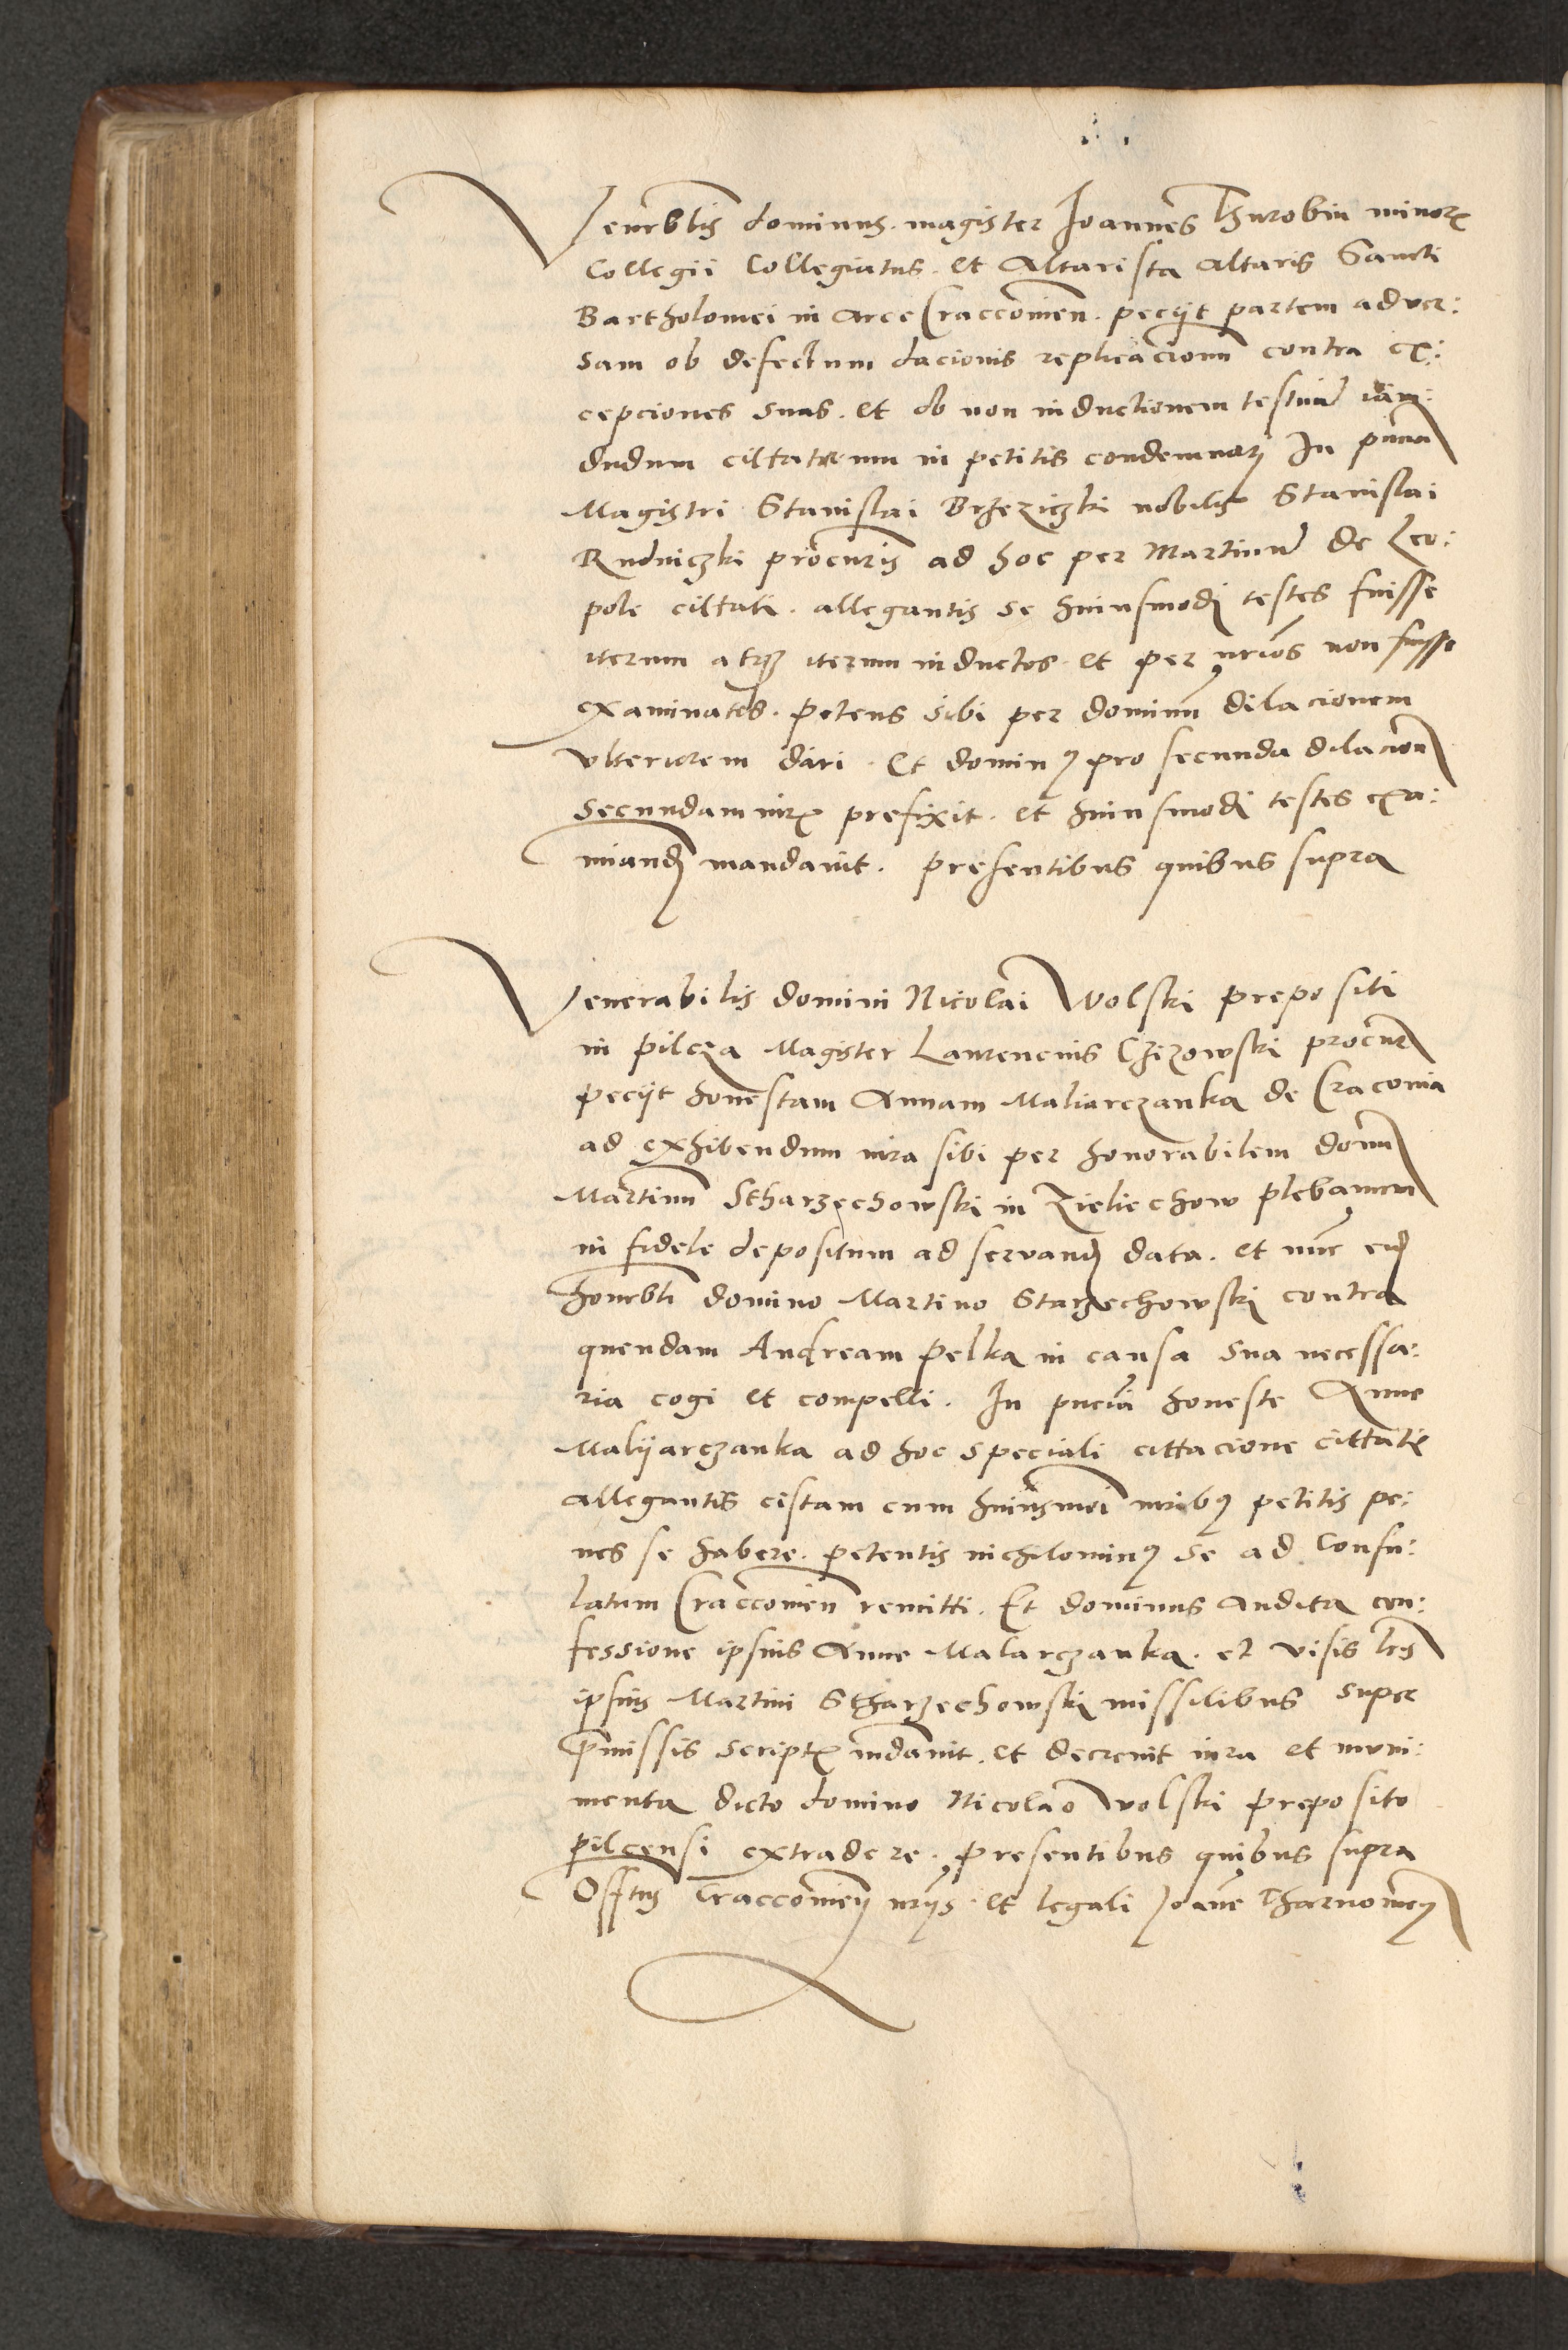 Venerblis dominus magister Joannes Thurobin minoris
Collegii Collegiatus et Altarista altaris Sancti
Bartholomei in arce Craccovien. peciit partem adver:
sam ob defectum dacionis replicacionum contra ex:
cepciones suas. et ob non inductionem testium iam:
dudum cittatarum in petitis condemnari In pncia
Magistri Stanislai Brzeziczki nobilis Stanislai
Rudniczki procuris ad hoc per Martinum de Leo:
pole cittati. allegantis se huiusmodi testes fuisse
iterum atque iterum inductos et per nrios non fuisse
examinatos. petens sibi per dominum dilacionem
ulteriorem dari. Et dominus pro secunda dilacion
secundam iuris prefixit. et huiusmodi testes exa:
minand mandavit. presentibus quibus supra
Venerabilis domini Nicolai Wolski prepositi
in pilcza Magister Laurencius Chizowski procur
peciit honestam Annam Maliarczanka de Craconia
ad exhibendum iura sibi per honorabilem dominum
Martinum Stharzechowski in Zieliechow plebanum
in fidele depositum ad servand data. et nunc eid
honrbli domino Martino Starzechowski contra
quendam Andream pelka in causa sua necessa:
ria cogi et compelli. In pncia honeste Anne
Maliiarczanka ad hoc speciali cittacione cittate
allegantis cistam cum huiusmoi iuribus petitis pe:
nes se habere. petentis nichilominus se ad Consu:
latum Craccovien remitti. Et dominus audita con:
fessione ipsius Anne Malarczanka. et visis lris
ipsius Martini Stharzechowski missilibus super
pmissis scriptis mdavit. et decrevit iura et muni:
menta dicto domino Nicolao Wolski preposito
pilcensi extradere. presentibus quibus supra
Offtus Craccovien nriis. et legali Joanne Tharnowen